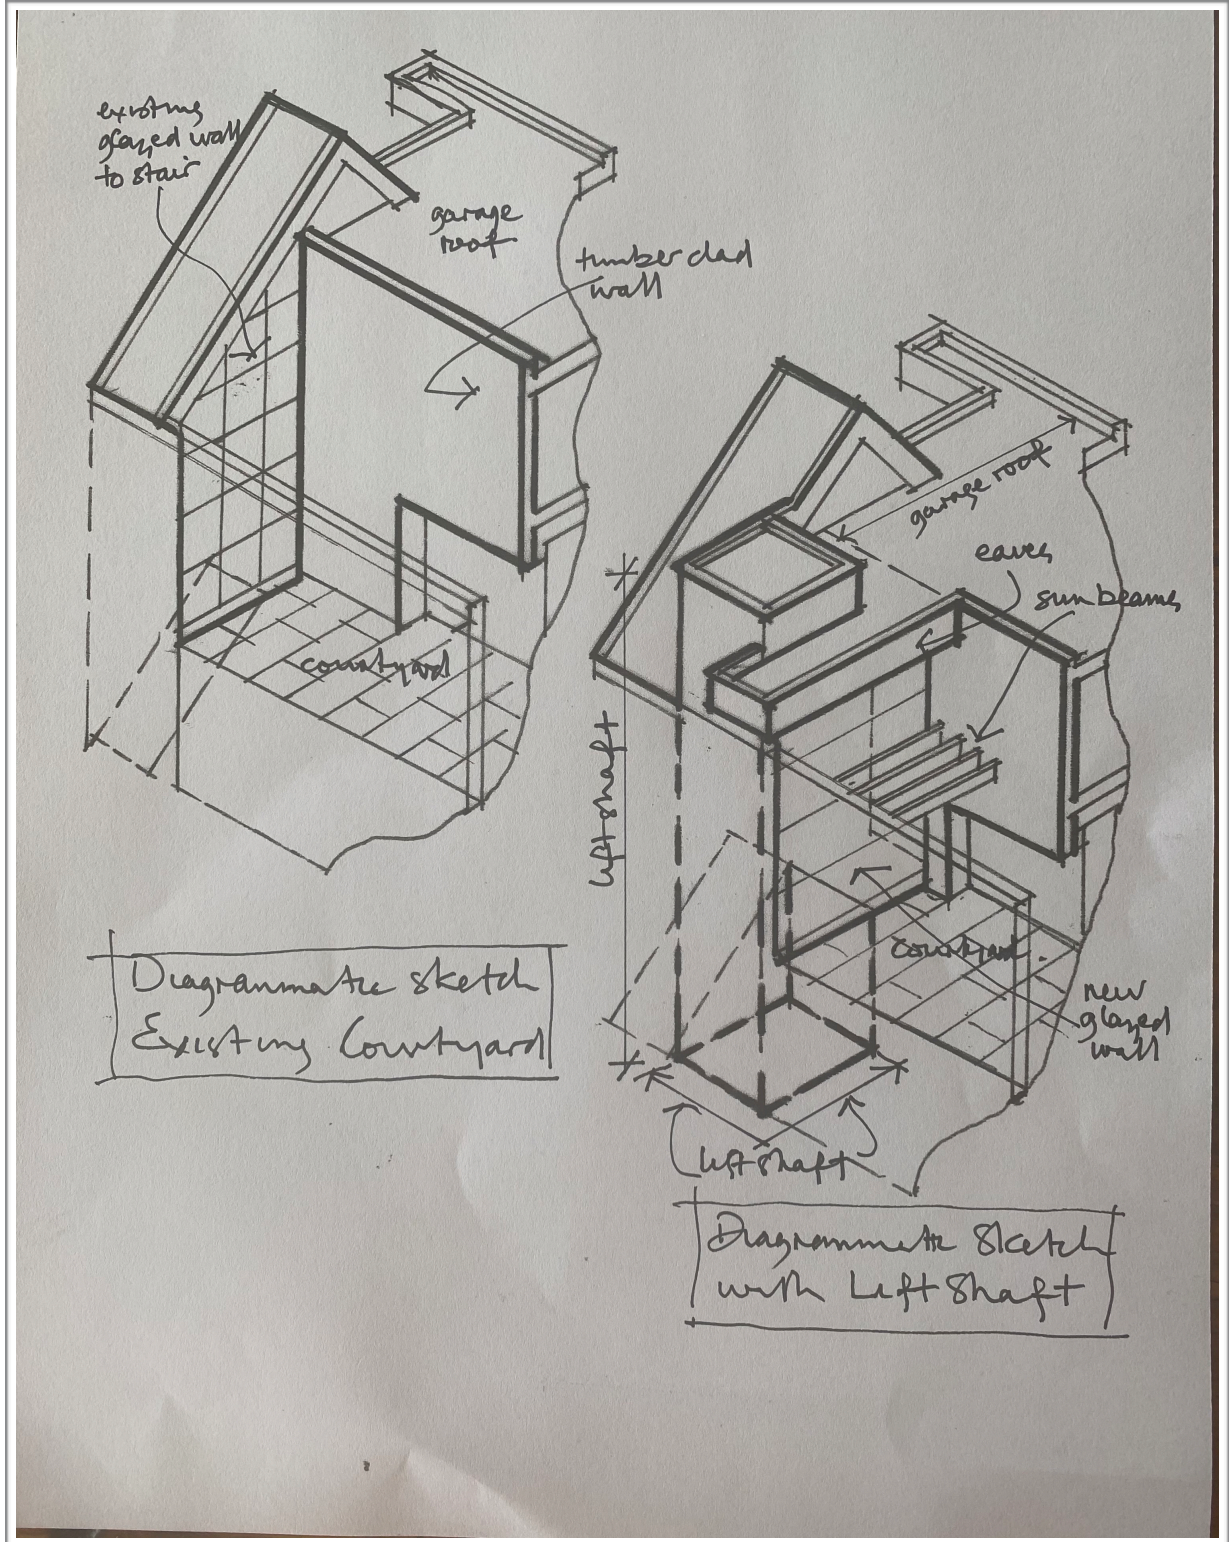 existing
glazed wall
to stair
garage
roof
timber clad
wall
courtyard
Diagrammatic Sketch
Existing Courtyard
garage roof
eaves
sunbeams
lift shaft
courtyard
new
glazed
wall
lift shaft
Diagrammatic Sketch
with Lift Shaft